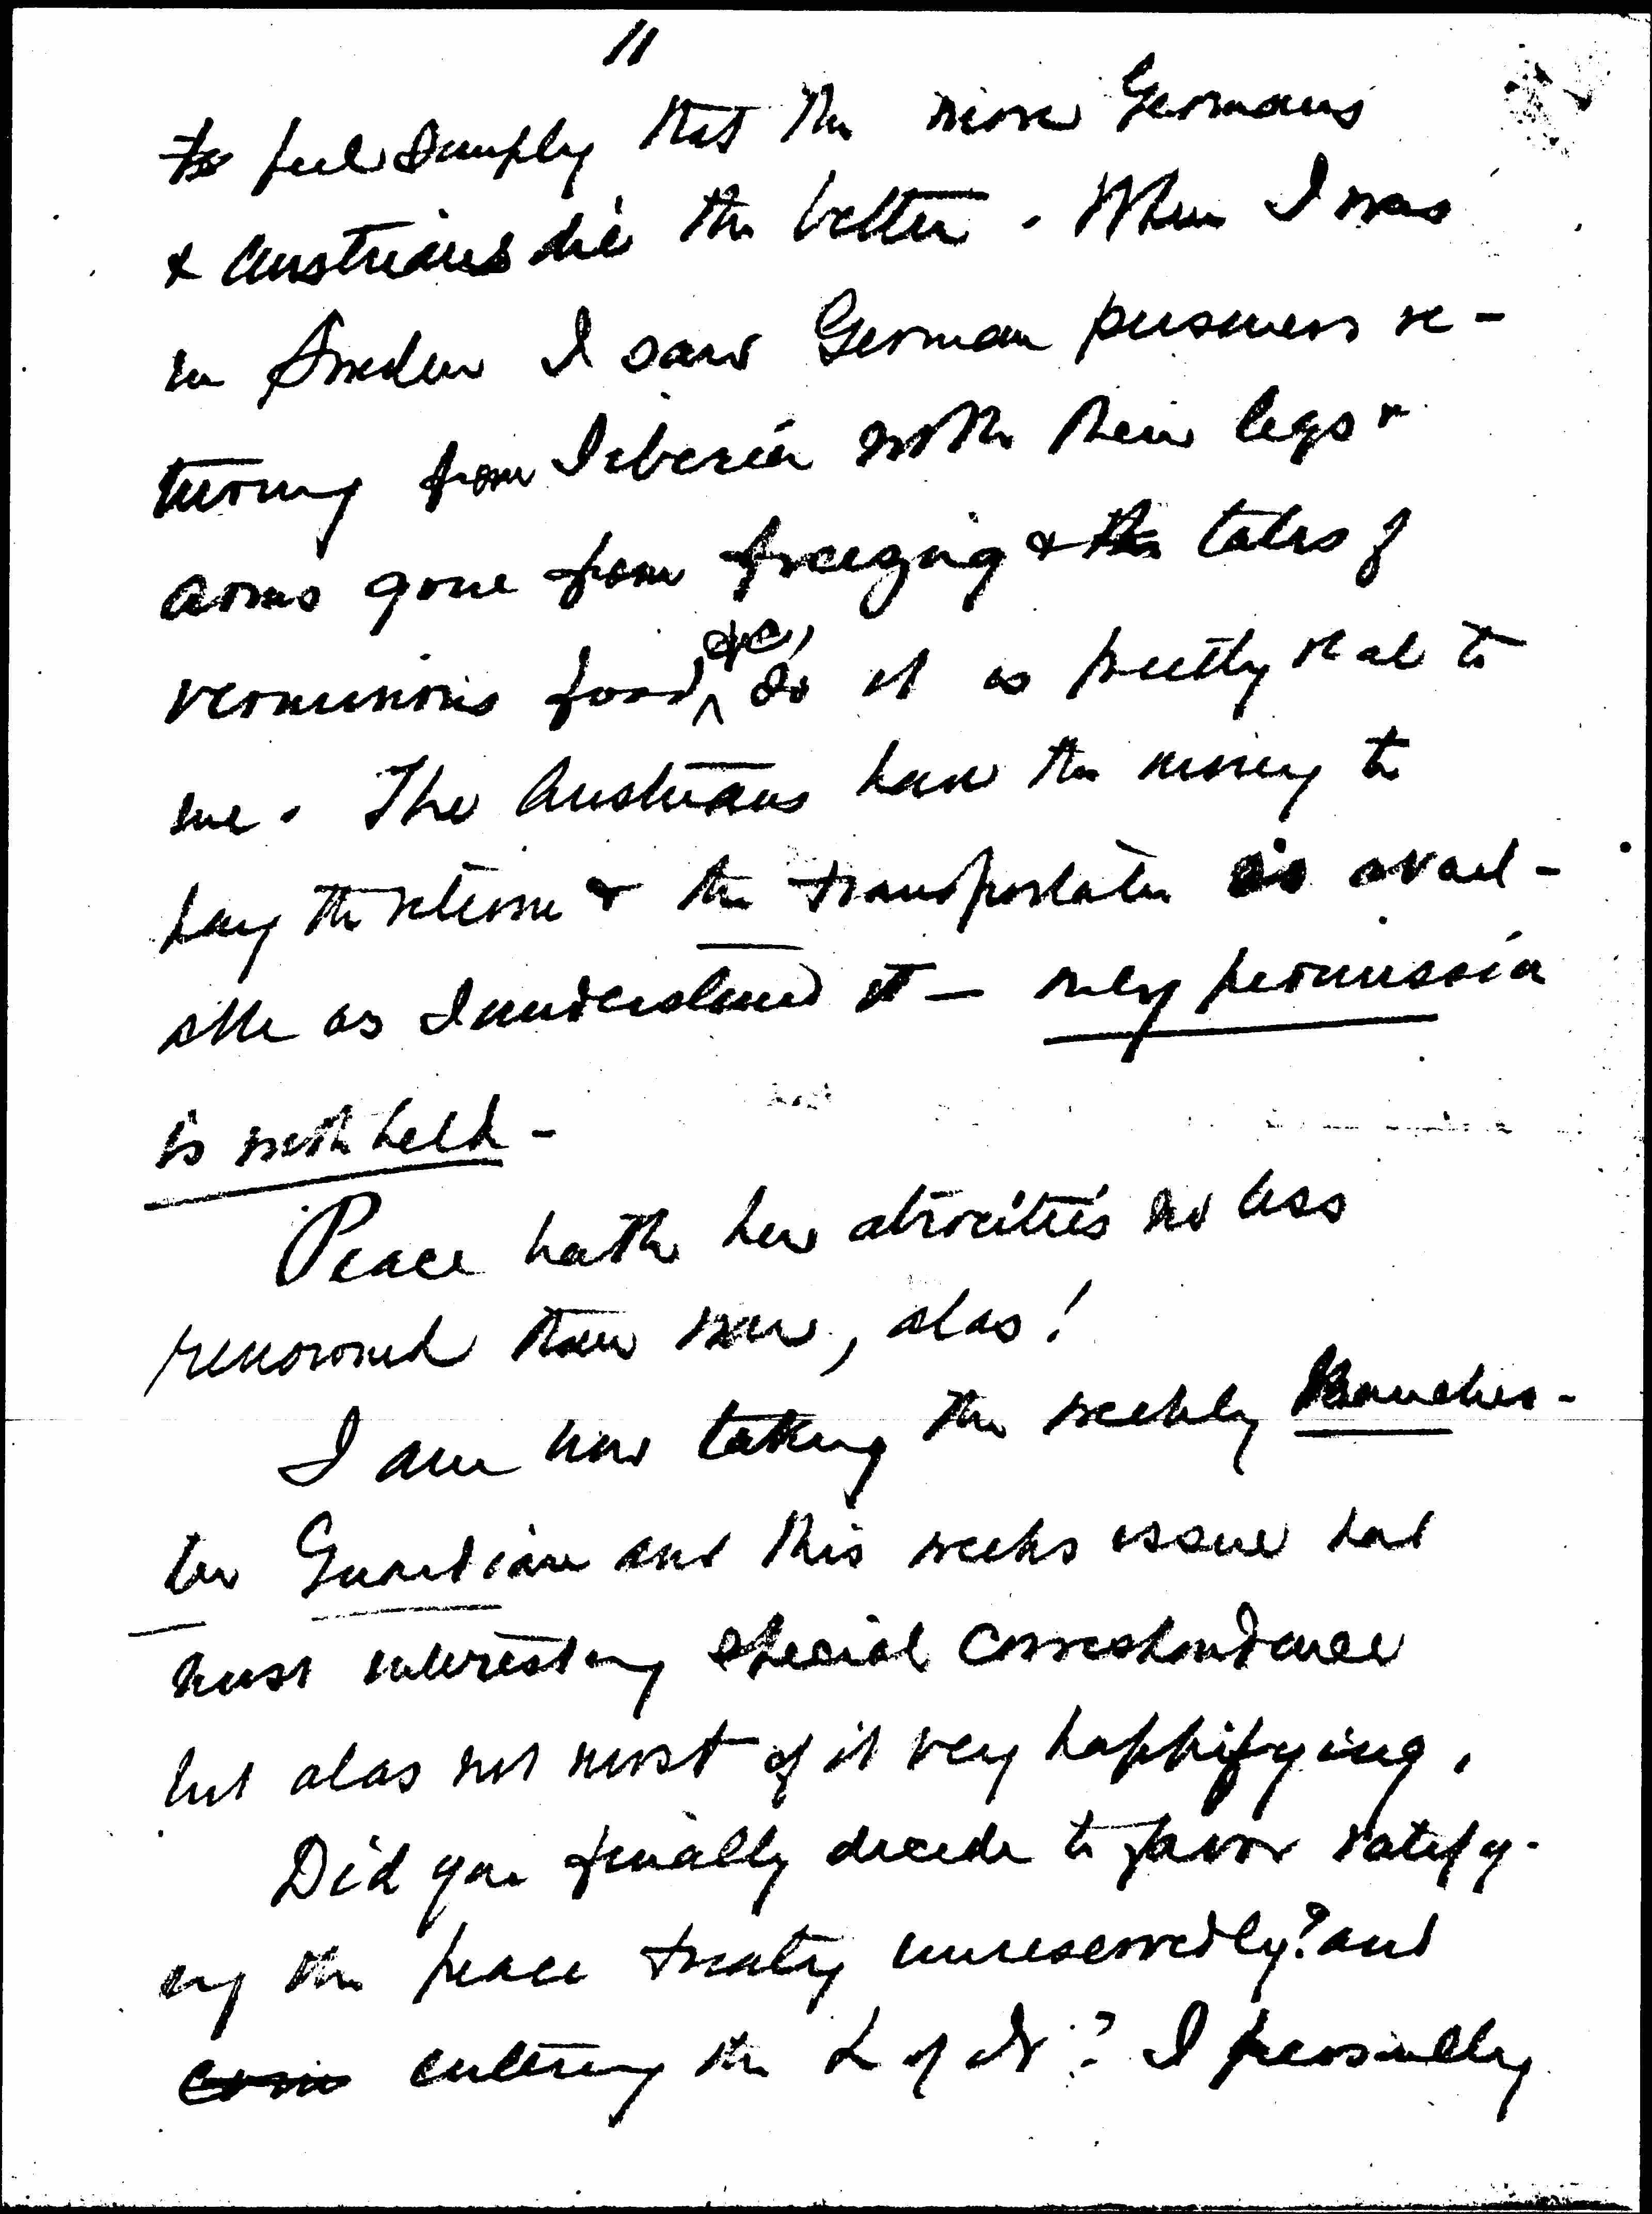 11
to feel simply that the more Germans
& Austrians die the better. When I was
in Sweden I saw German prisoners re-
turning from Siberia with their legs &
arms gone from freezing & the tales of
verminous food, etc, so it is pretty real to
me. The Austrians have the money to
pay the return & the transportation is avail-
able as I understand it — only permission
is withheld -
Peace hath her atrocities no less
renowned than war, alas!
I am now taking the weekly Manches-
ter Guardian and this weeks issue had
most interesting special correspondence
but alas not most of it very happifying.
Did you finally decide to favor ratify-
ing the peace treaty unreservedly? and
entering the L of N? I personally